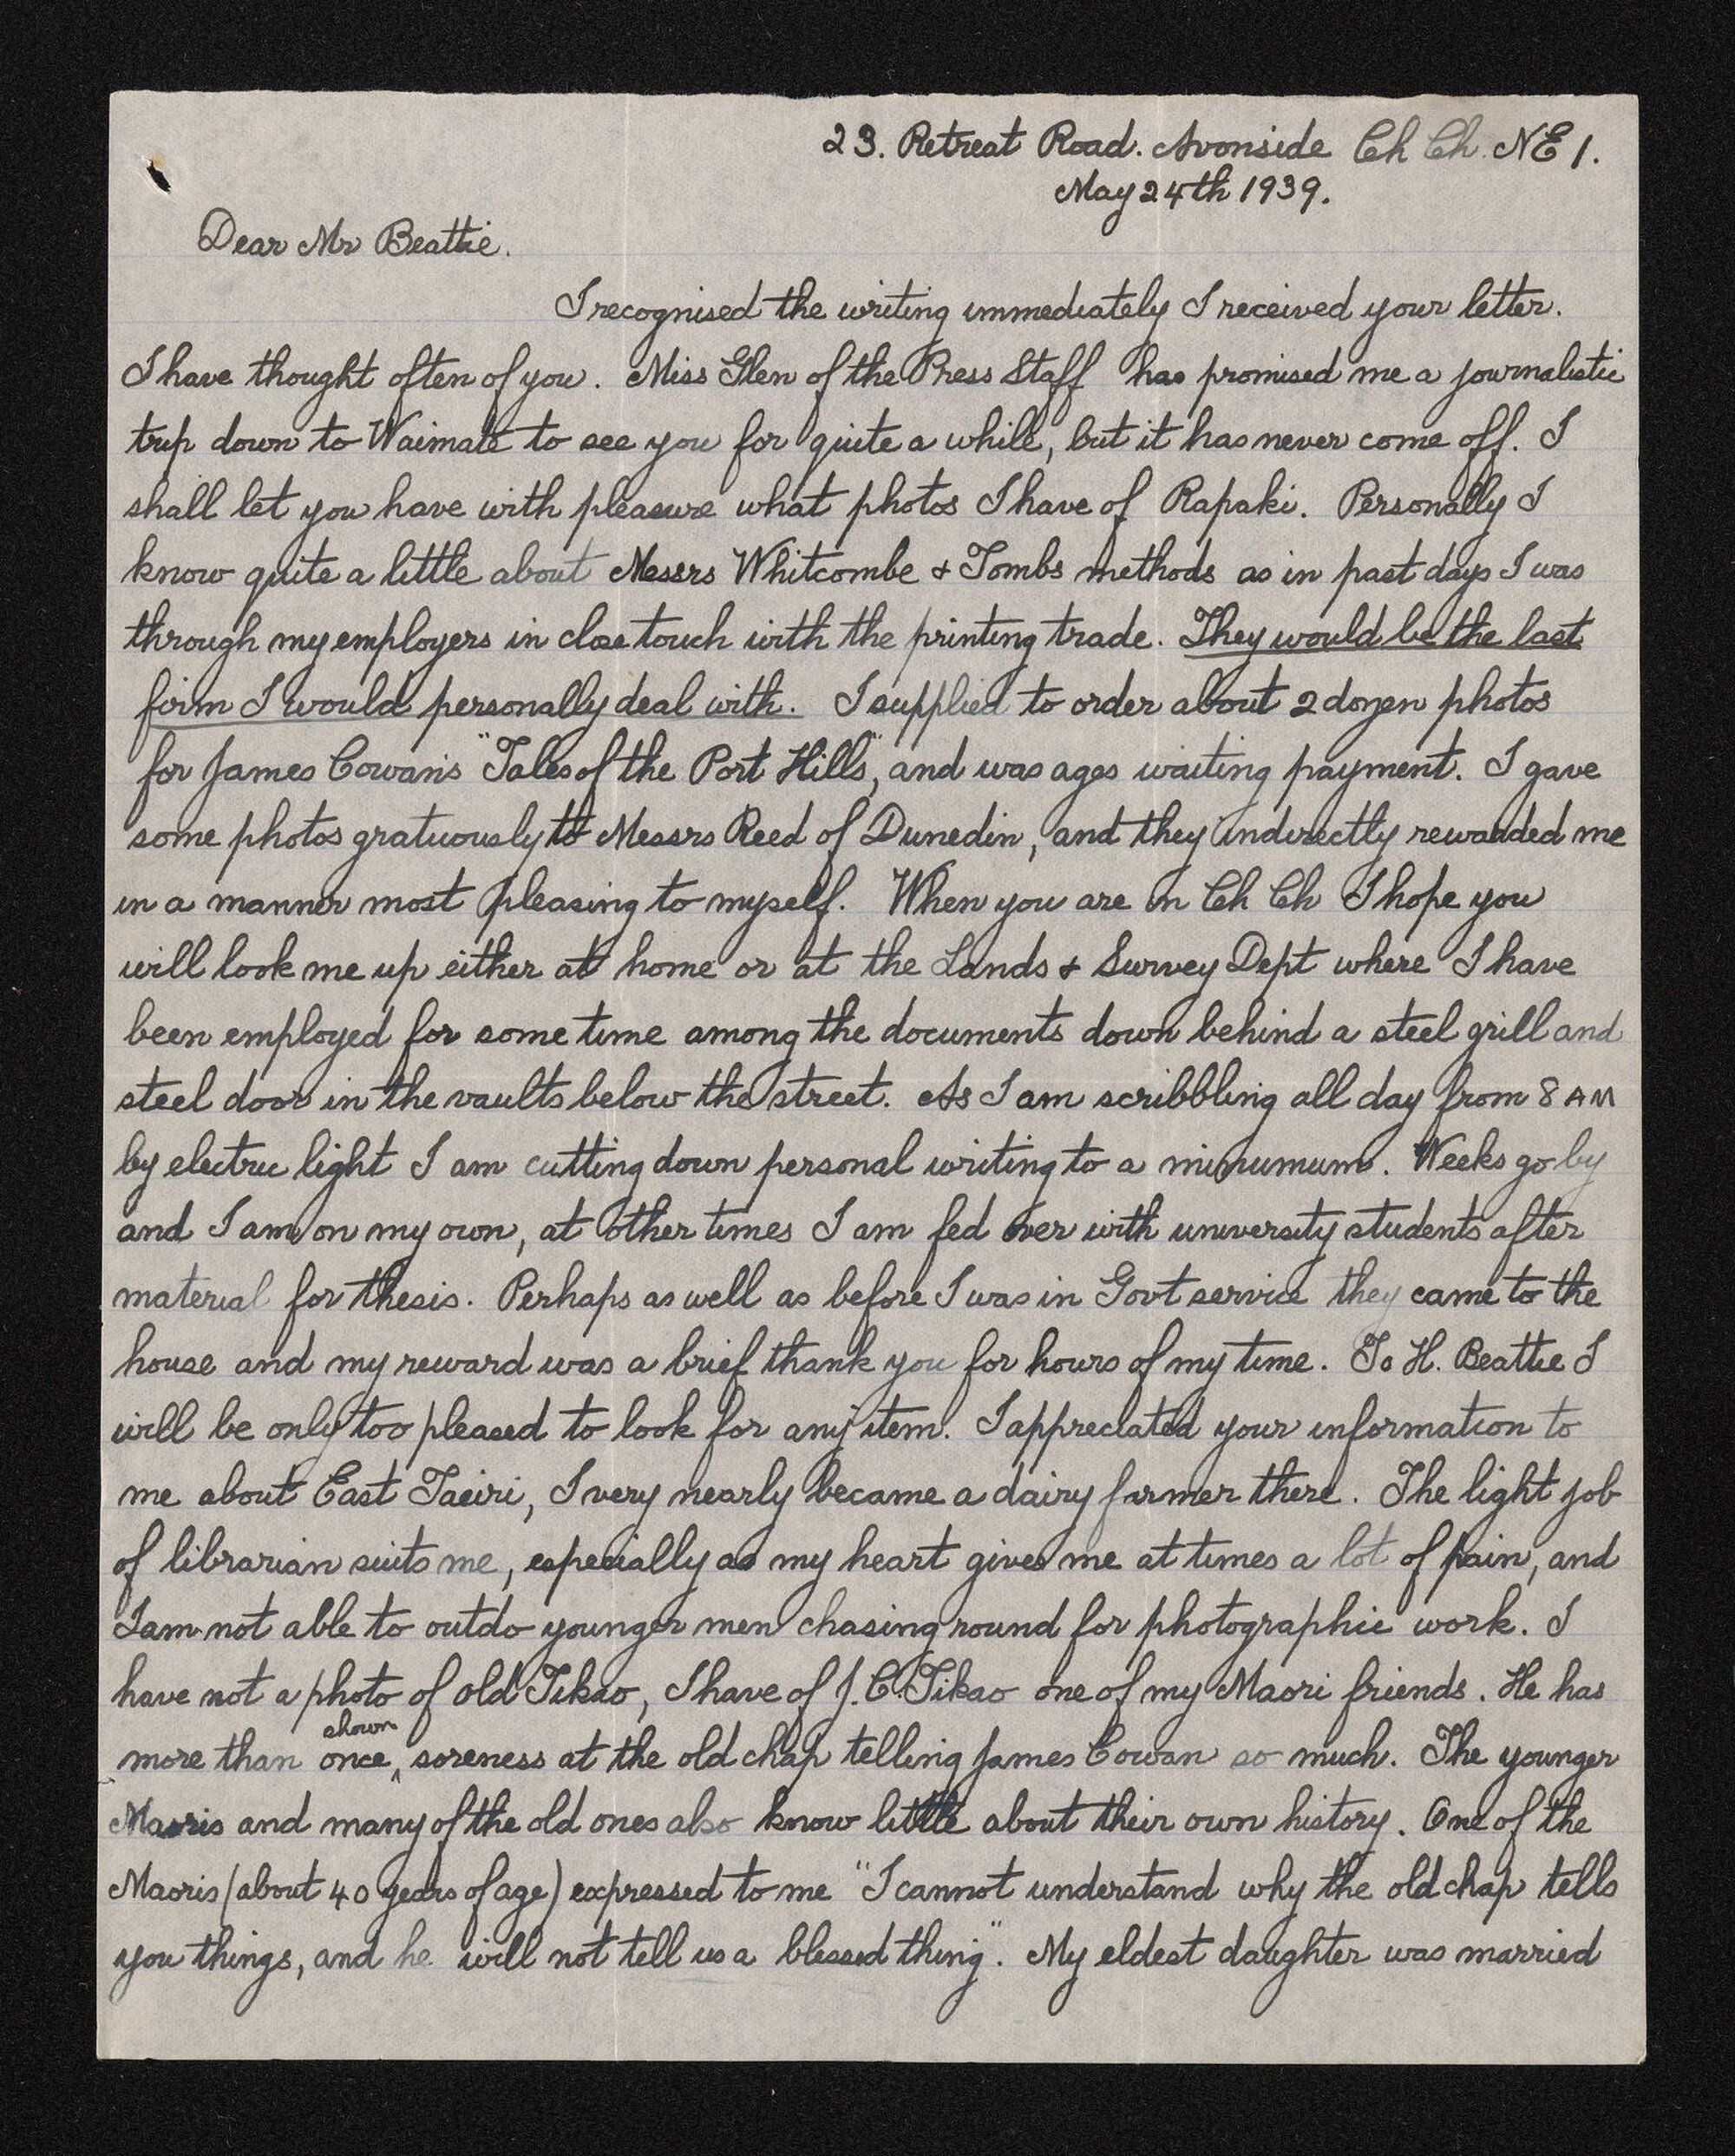 23. Retreat Road. Avonside Ch Ch. NE 1.
May 24th 1939.
Dear Mr Beattie.
I recognised the writing immediately I received your letter.
I have thought often of you. Miss Glen of the Press Staff has promised me a journalistic
trip down to Waimate to see you for quite a while, but it has never come off. I
shall let you have with pleasure what photos I have of Rapaki. Personally I
know quite a little about Messrs Whitcombe & Tombs methods as in past days I was
through my employers in close touch with the printing trade. They would be the last
firm I would personally deal with. I supplied to order about 2 dozen photos
for James Cowan's "Tales of the Port Hills", and was ages waiting payment. I gave
some photos gratuously to Messrs Reed of Dunedin, and they indirectly rewarded me
in a manner most pleasing to myself. When you are in Ch Ch I hope you
will look me up either at home or at the Lands & Survey Dept where I have
been employed for some time among the documents down behind a steel grill and
steel door in the vaults below the street. As I am scribbling all day from 8 AM
by electric light I am cutting down personal writing to a minumum. Weeks go by
and I am on my own, at other times I am fed over with university students after
material for thesis. Perhaps as well as before I was in Govt service they came to the
house and my reward was a brief thank you for hours of my time. To H. Beattie I
will be only too pleased to look for any item. I appreciated your information to
me about East Taeiri, I very nearly became a dairy farmer there. The light job
of librarian suits me, especially as my heart gives me at times a lot of pain, and
I am not able to outdo younger men chasing round for photographic work. I
have not a photo of old Tikao, I have of J. C. Tikao one of my Maori friends. He has
more than once, shown soreness at the old chap telling James Cowan so much. The younger
Maoris and many of the old ones also know little about their own history. One of the
Maoris (about 40 years of age) expressed to me "I cannot understand why the old chap tells
you things, and he will not tell us a blessed thing". My eldest daughter was married